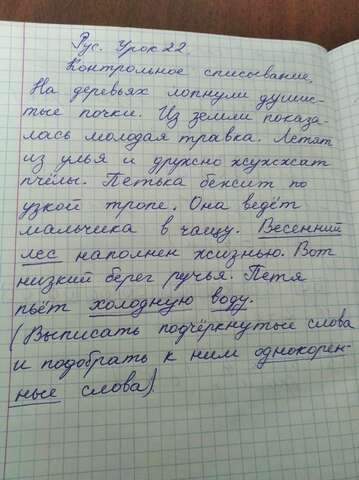 Рус. Урок 22.
Контрольное списывание.
На деревьях лопнули душис-
тые почки. Из земли показа-
лась молодая травка. Летят
из улья и дружно жужжат
пчёлы. Петька бежит по
узкой тропе. Она ведёт
мальчика в чащу. Весенний
лес наполнен жизнью. Вот
низкий берег ручья. Петя
пьёт холодную воду.
(Выписать подчёркнутые слова
и подобрать к ним однокорен-
ные слова)